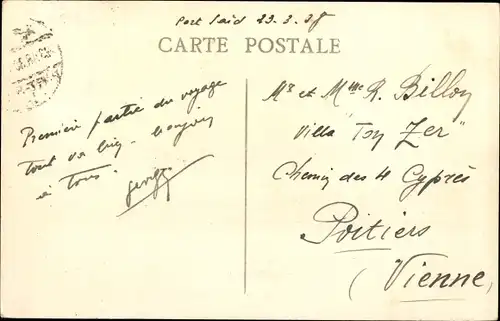 Port Said 23.3.38
CARTE POSTALE
Première partie du voyage
Tout va bien - bonjour
à Tous.
Mr et Mme R. Billoy
Villa "Toy Zer"
Chemin des 4 Cyprès
Poitiers
(Vienne)